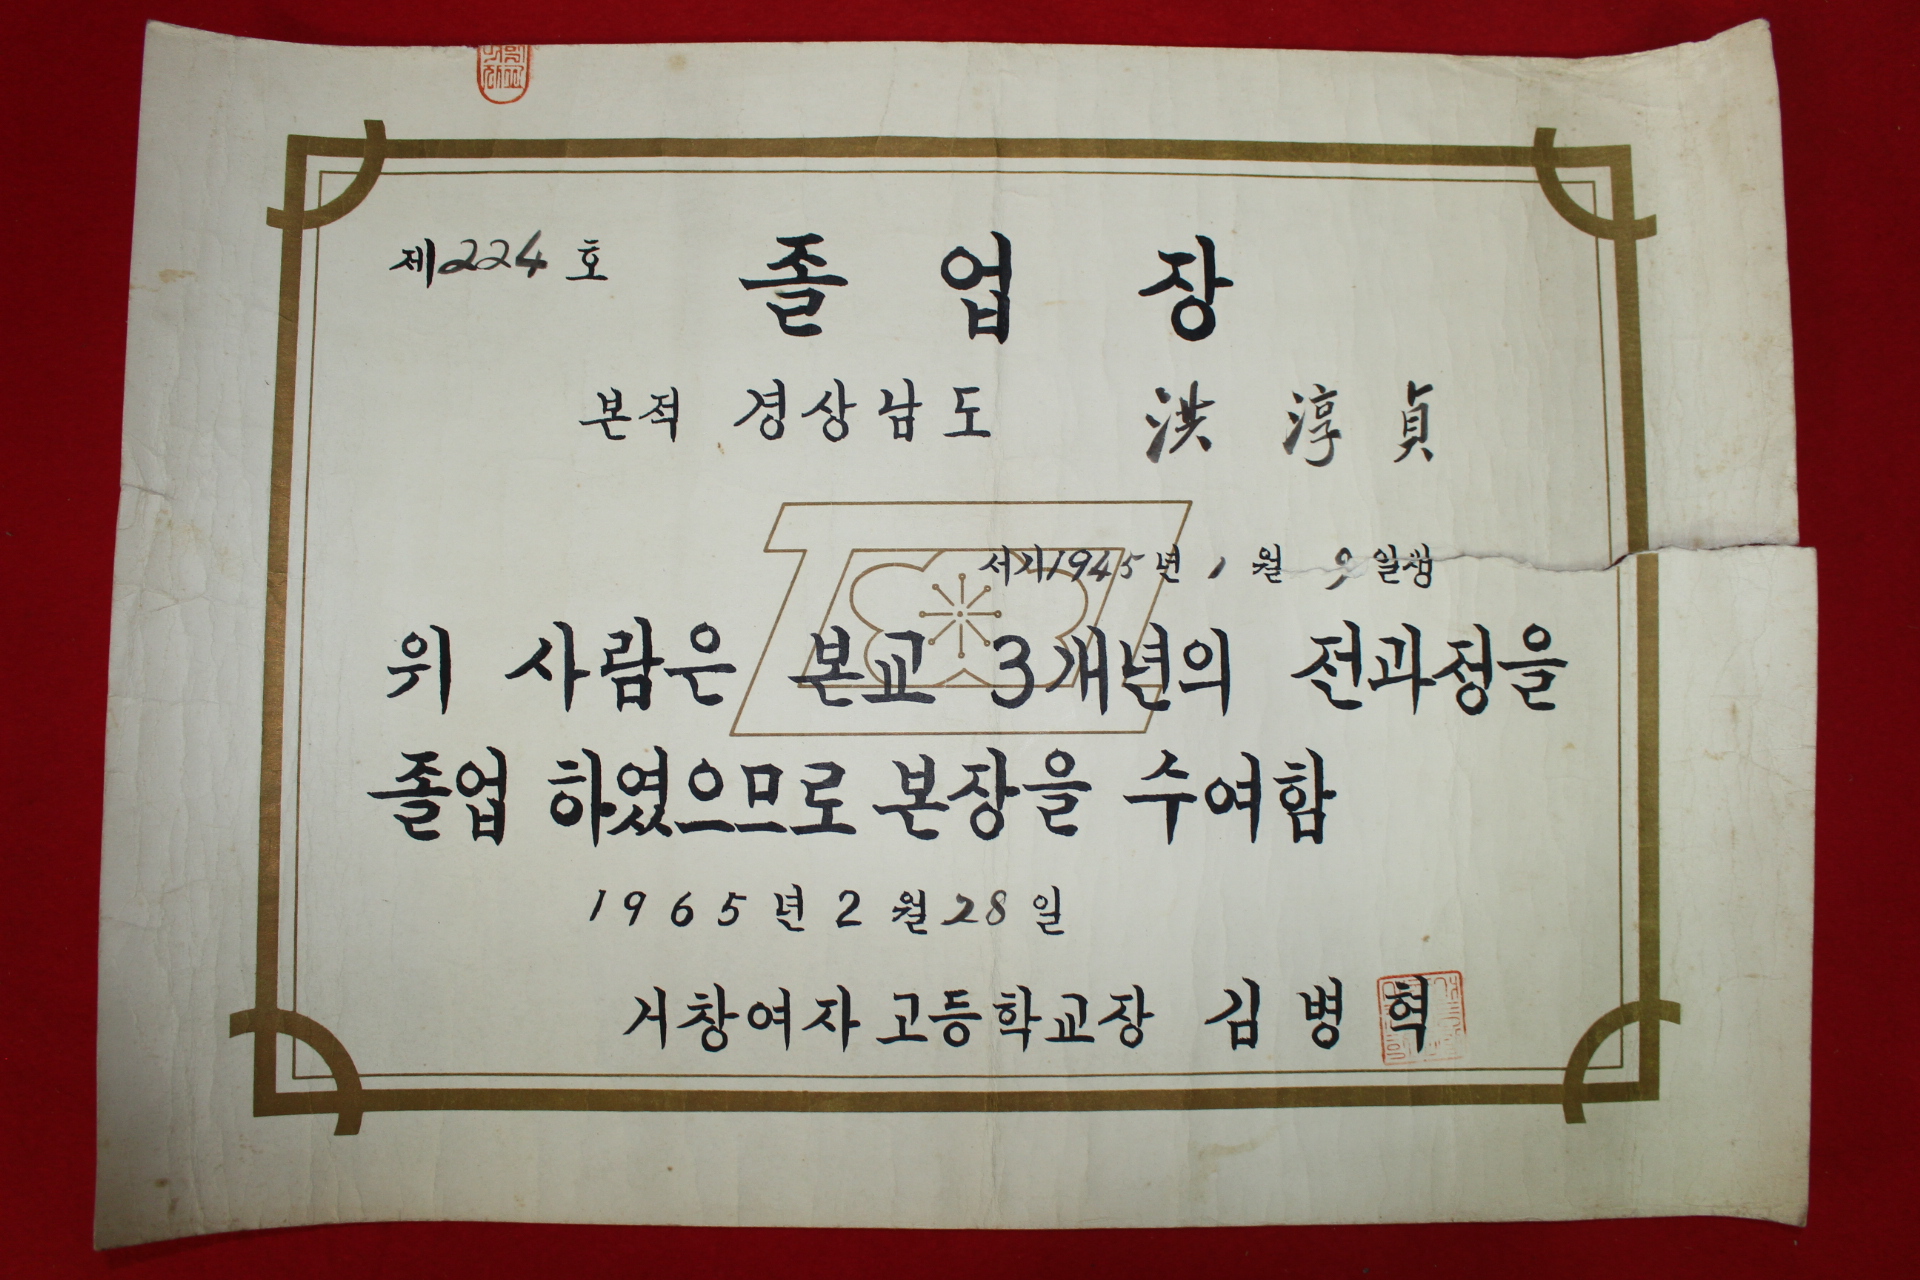 제224호 졸업장
본적 경상남도 洪淳貞
서기1945년 1월 9일생
위 사람은 본교 3개년의 전과정을
졸업 하였으므로 본장을 수여함
1965년 2월 28일
거창여자고등학교장 김병혁